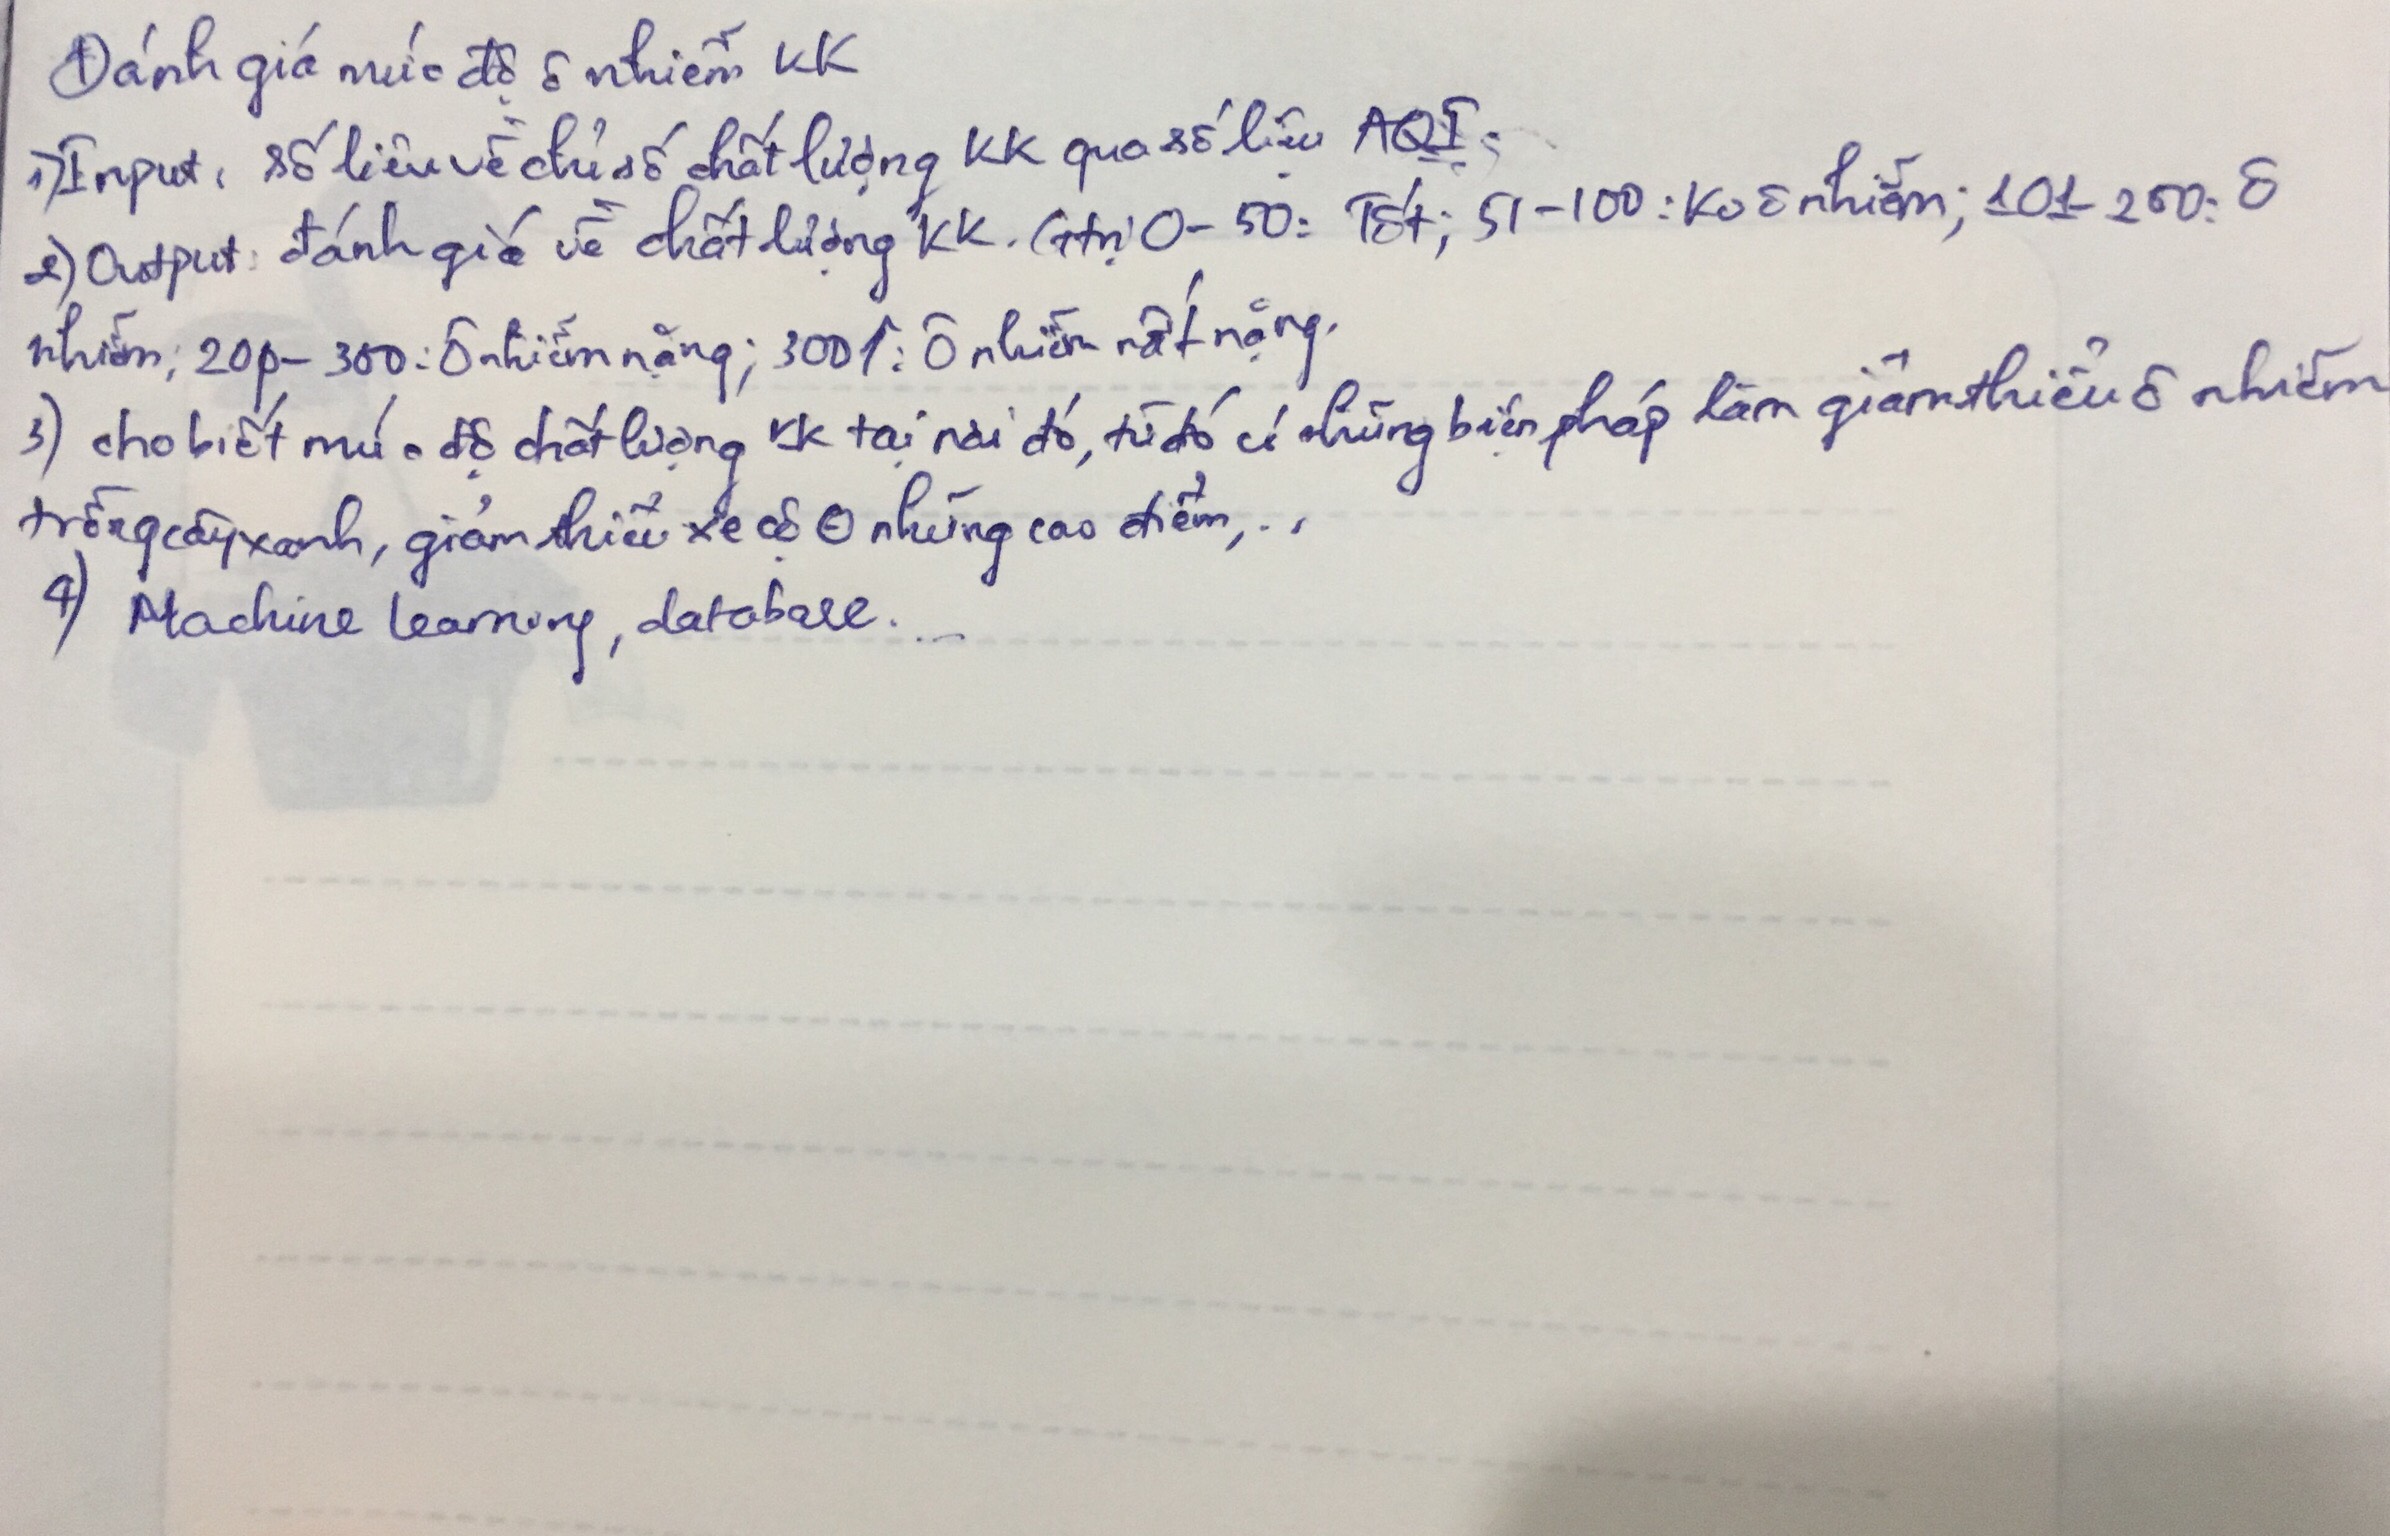 Đánh giá mức độ ô nhiễm KK
1) Input: số liệu về chỉ số chất lượng KK qua số liệu AQI;
2) Output: đánh giá về chất lượng KK. (gtrị 0 - 50: Tốt; 51 - 100: Ko ô nhiễm; 101 - 200: Ô
nhiễm; 201 - 300: Ô nhiễm nặng; 300↑: Ô nhiễm rất nặng.
3) cho biết mức độ chất lượng KK tại nơi đó, từ đó có những biện pháp làm giảm thiểu ô nhiễm
trồng cây xanh, giảm thiểu xe cộ ở những cao điểm,..,
4) Machine learning, database...